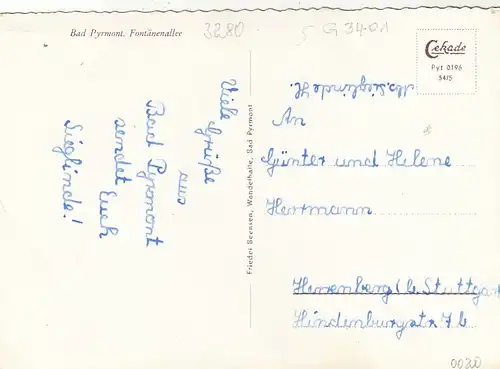 Bad Pyrmont. Fontänenallee
3280
G 34-01
Cekade
Pyr 0196
54/5
Viele
Grüße
aus
Bad Pyrmont
sendet Euch
Sieglinde!
Frieder Seensen, Wandelhalle, Bad Pyrmont
Sieglinde H.
An
Günter und Helene
Herrmann
Herrenberg / b. Stuttgart
Hindenburgstr. 7 b
0020